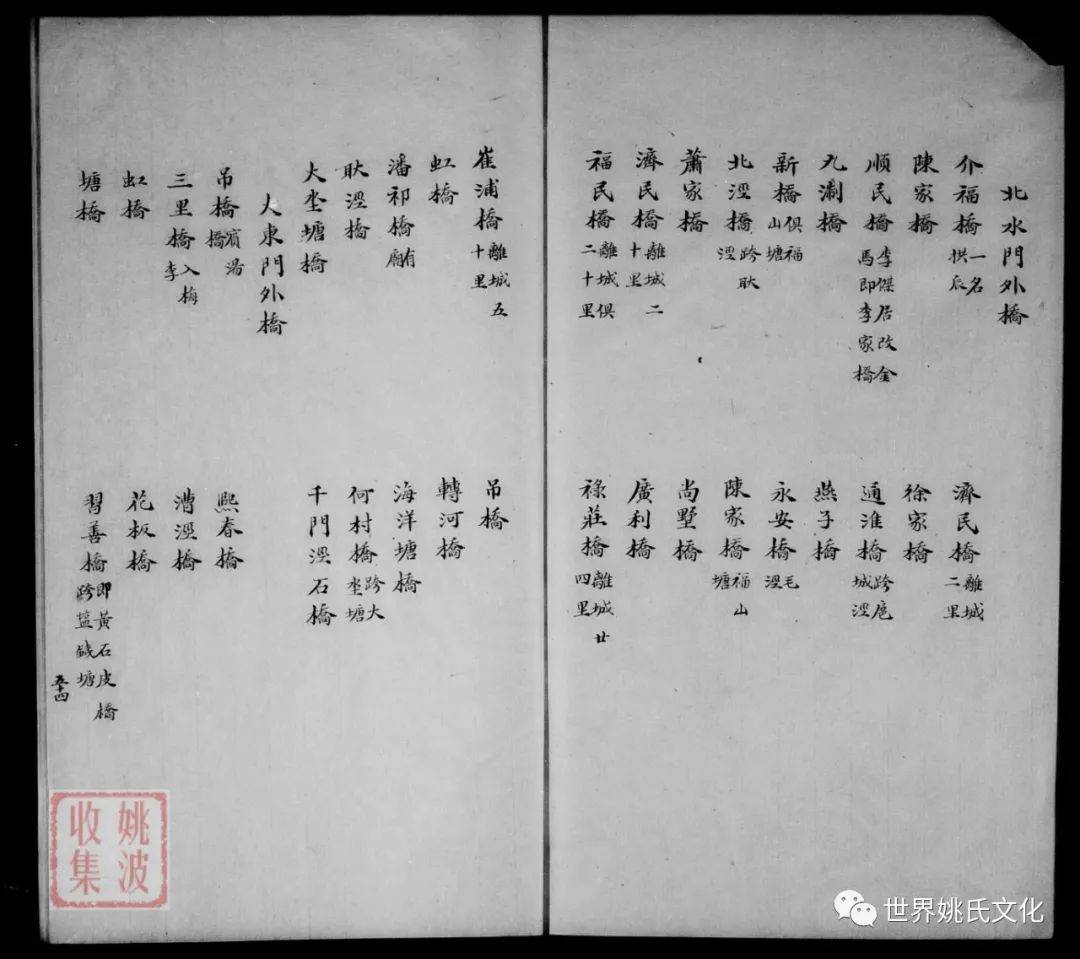 北水門外橋
介福橋一名拱辰
濟民橋離城二里
陳家橋
徐家橋
順民橋李傑居改金馬即李家橋
通淮橋跨扈城涇
九淛橋
燕子橋
新橋俱福山塘
永安橋毛涇
北涇橋跨耿涇
陳家橋福山塘
蕭家橋
尚墅橋
濟民橋離城二十里
廣利橋
福民橋離城俱二十里
祿莊橋離城廿四里
崔浦橋離城五十里
吊橋
虹橋
轉河橋
潘祁橋有廟
海洋塘橋
耿涇橋
何村橋跨大坔塘
大坔塘橋
千門涇石橋
大東門外橋
吊橋賓湯橋
熙春橋
三里橋入梅李
漕涇橋
虹橋
花板橋
塘橋
習善橋即黃石皮橋跨塩鐡塘
五十四
姚波收集
世界姚氏文化